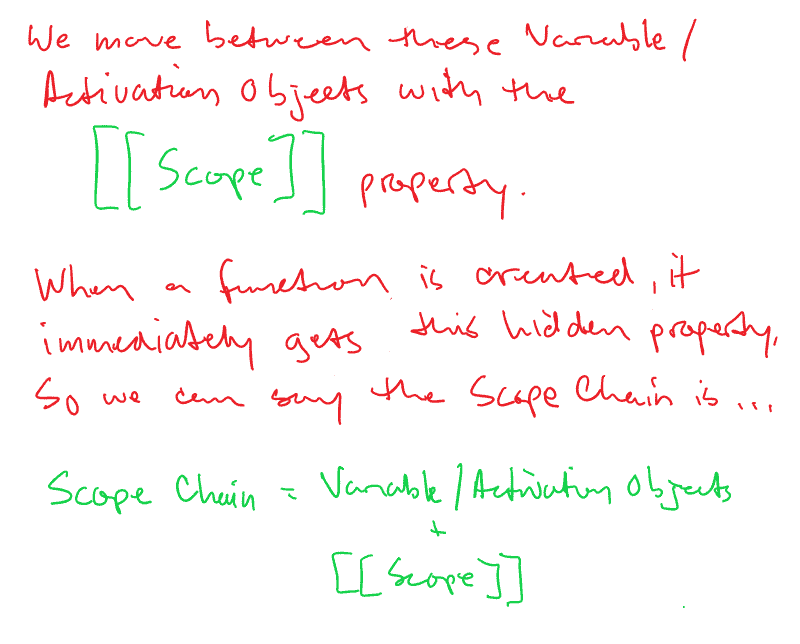 We move between these Variable/
Activation Objects with the
[[Scope]] property.
When a function is created, it
immediately gets this hidden property.
So we can say the Scope Chain is ...
Scope Chain = Variable/Activation Objects
+
[[Scope]]